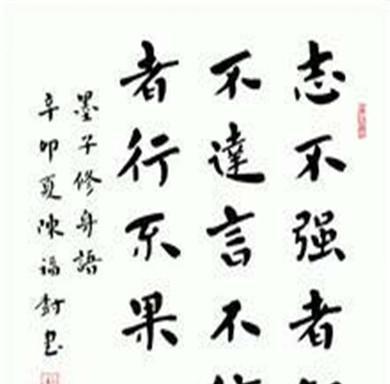 志不强者
不達言不
者行不果
墨子修身語
辛卯夏陳福封书